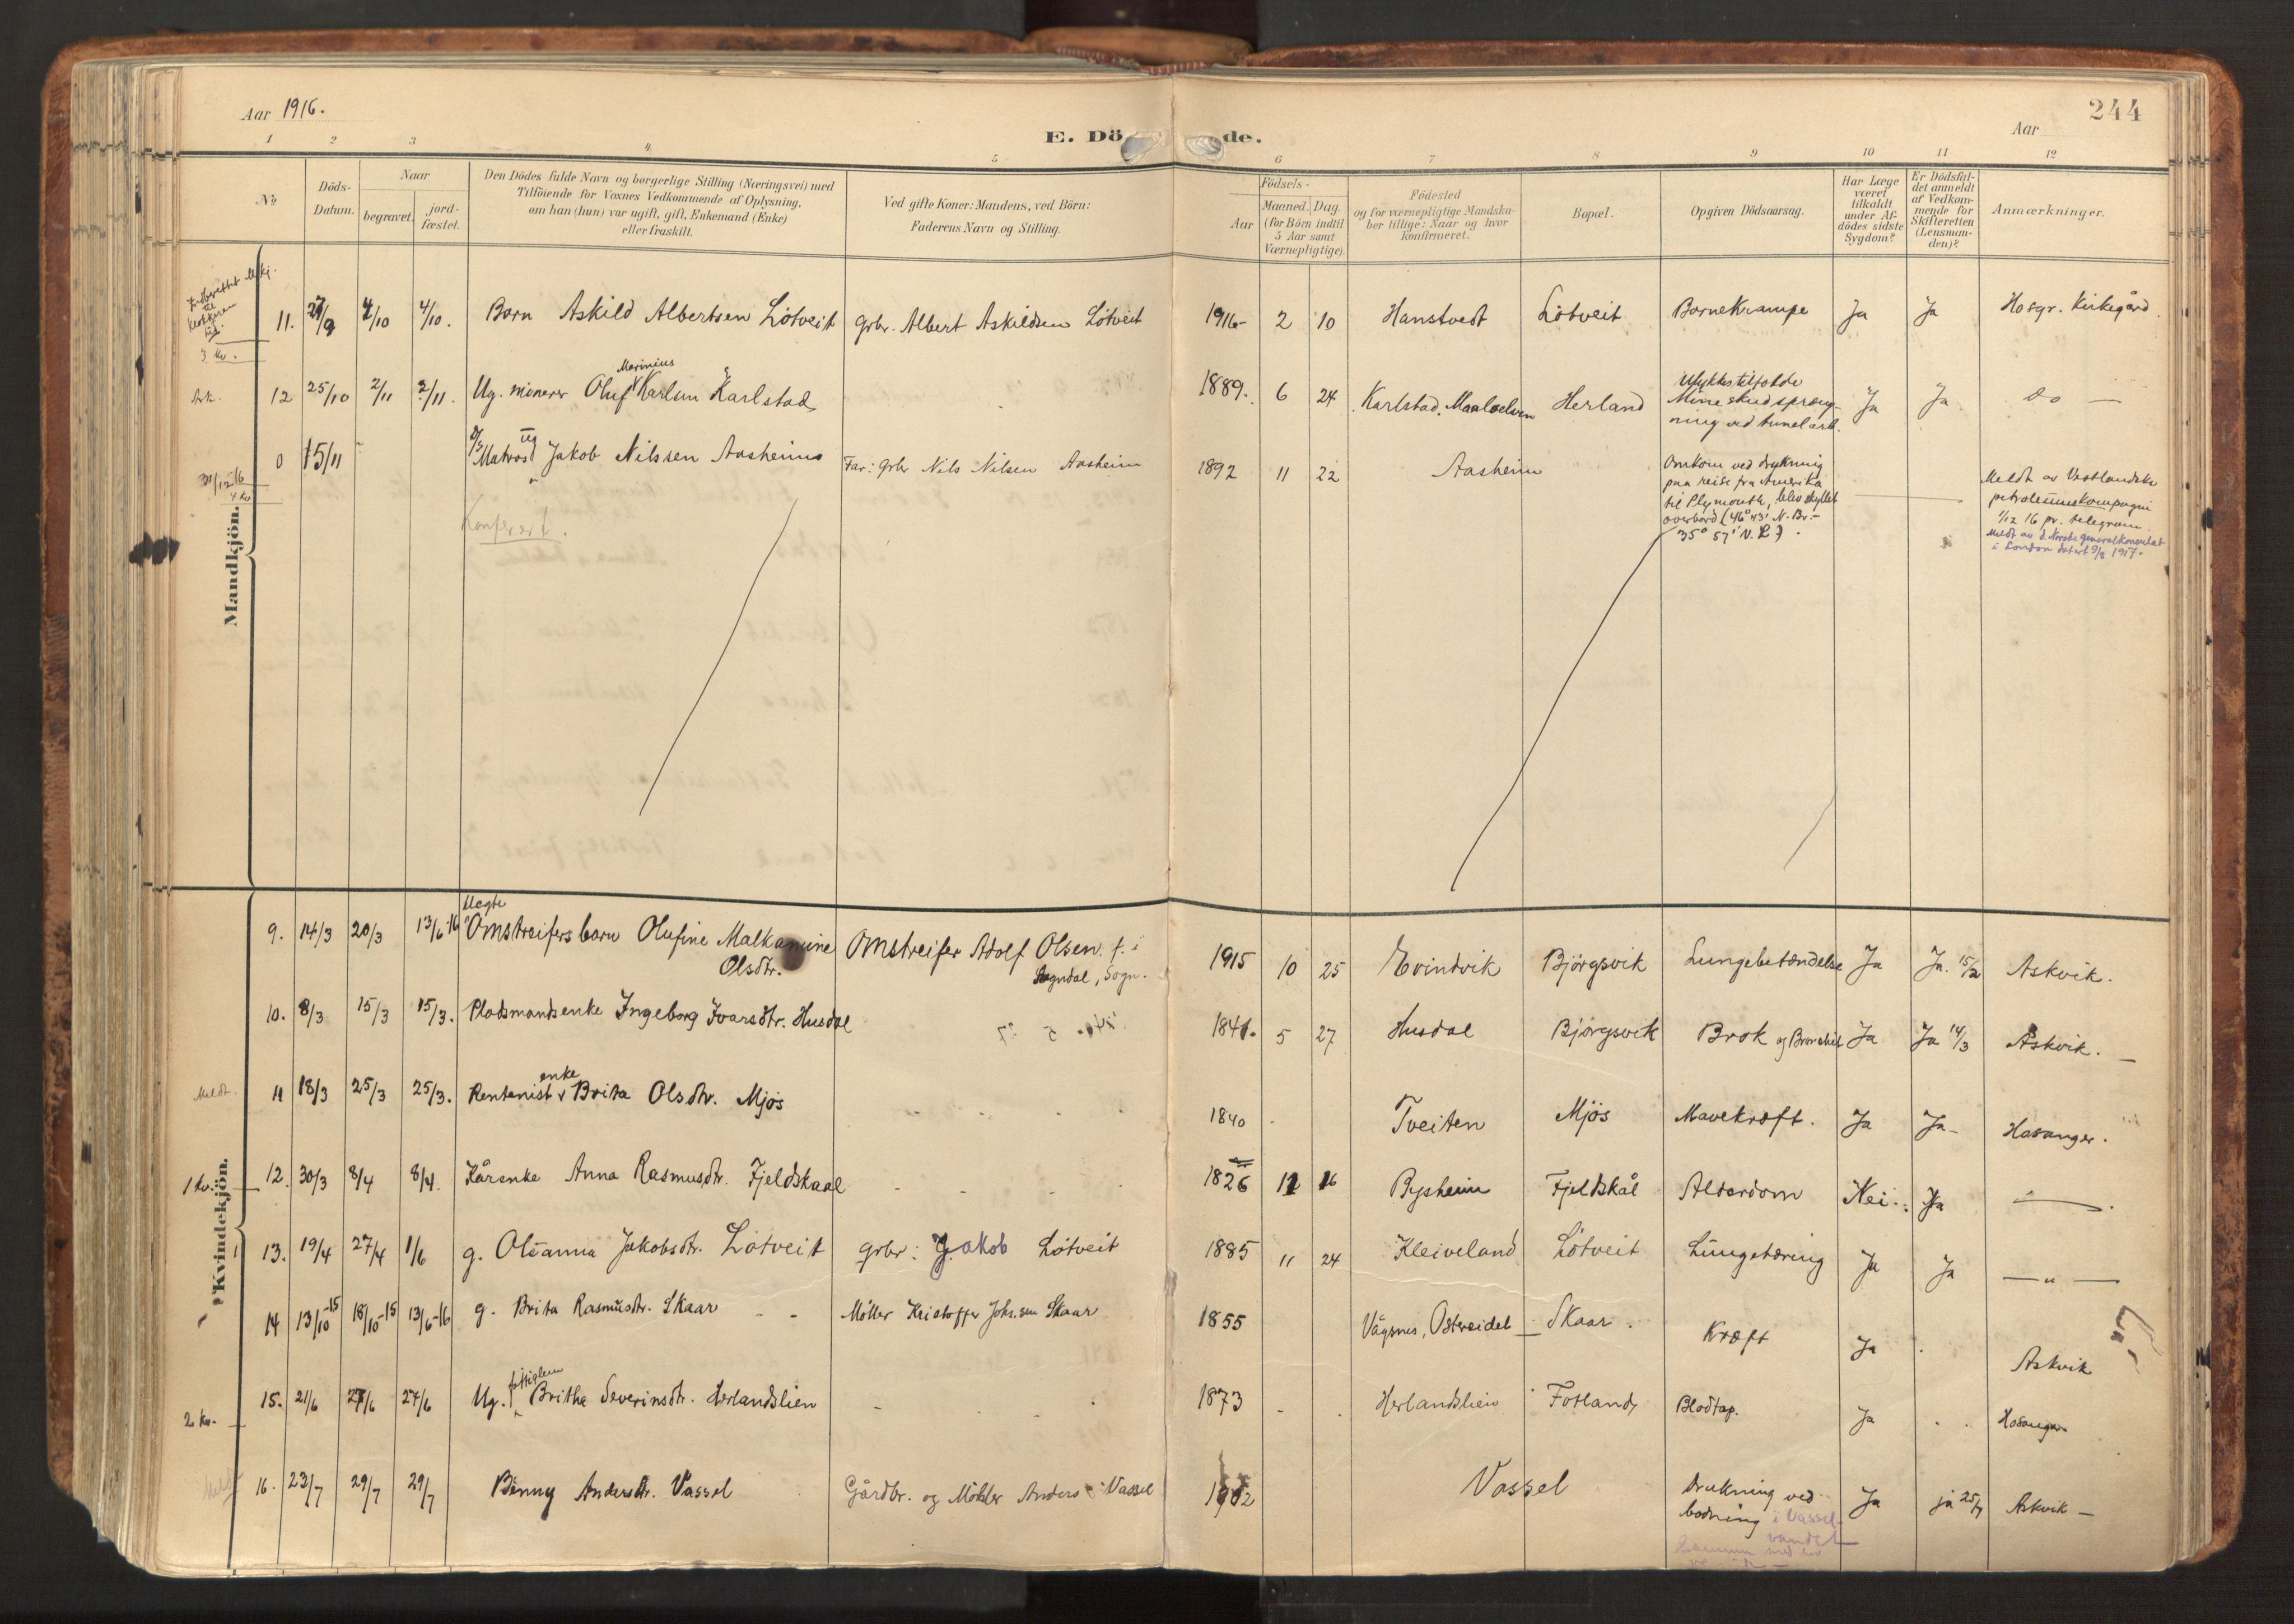 Aar 1916.
E. Dö de.
Aar
244
1 2 3 4 5 6 7 8 9 10 11 12
No
Döds-
Datum.
Naar
begravet.
jord-
fæstet.
Den Dödes fulde Navn og borgerlige Stilling (Næringsvei) med
Tilföiende for Voxnes Vedkommende af Oplysning,
om han (hun) var ugift, gift, Enkemand (Enke)
eller fraskilt.
Ved gifte Koner: Mandens, ved Börn:
Faderens Navn og Stilling.
Födsels-
Aar
Maaned. Dag.
(for Börn indtil
5 Aar samt
Værnepligtige).
Födested
og for værnepligtige Mandska-
ber tillige: Naar og hvor
Konfirmeret.
Bopæl.
Opgiven Dödsaarsag.
Har Læge
været
tilkaldt
under Af-
dödes sidste
Sygdom?
Er Dödsfal-
det anmeldt
af Vedkom-
mende for
Skifteretten
(Lensman-
den)?
Anmærkninger.
Mandkjön.
3 Kr.
11. 27/9 4/10 4/10. Barn Askild Albertsen Lötveit Grbr. Albert Askildsen Lötveit 1916- 2 10 Hanstvedt Lötveit Barnekrampe Ja Ja Hosgr. Kirkegård.
Marinius
12 25/10 2/11 2/11. Ug. minerer Oluf Karlsen Karlstad 1889. 6 24 Karlstad, Maalselven Herland Ulykkestilfælde
Mineskudspræng-
ning ved tunelarb. Ja Ja do —
ug
0 15/11 Matros Jakob Nilssen Aasheim Far: Grbr Nils Nilsen Aasheim 1892 11 22 Aasheim Omkom ved drukning
paa reise fra Amerika
til Plymouth, blev skyllet
overbord (46° 43' N. Br.-
35° 57' V. L).
Meldt av Vestlandske
petroleumskompagni
1/12 16 pr. telegram.
Meldt av d. Norske generalkonsulat
i London datert 9/8 1917.
30/12 16
4 Kr
Konferert.
Kvindekjön.
Uegte
9. 14/3 20/3 13/6-16 Omstreifersbarn Olufine Malkamine
Olsdtr. Omstreifer Adolf Olsen. f. i
Sogndal, Sogn. 1915 10 25 Evindvik Björgsvik Lungebetændelse Ja Ja. 15/2 Askvik.
10. 8/3 15/3 15/3. Pladsmandsenke Ingeborg Ivarsdtr. Husdal 1841. 5 27 Husdal Björgsvik Brok og Bronchit Ja Ja 14/3 Askvik. —
Meldt.
enke
11 18/3 25/3 25/3. Rentenist Brita Olsdtr. Mjös 1840 Tveiten Mjös Mavekræft. Ja Ja- Hosanger.
1 Kr.
12. 30/3 8/4 8/4. Kårenke Anna Rasmusdtr. Fjeldskaal 1826 12 16 Bysheim Fjeldskål Alderdom Nei. Ja —
13. 19/4 27/4 1/6 g. Oleanna Jakobsdtr. Lötveit grbr: Jakob Lötveit 1885 11 24 Kleiveland Lötveit Lungetæring Ja Ja — " —
14 13/10-15 18/10-15 13/6-16 g. Brita Rasmusdtr. Skaar Möller Kristoffer Johs.sen Skaar 1855 Vågsnes, Ostereidet Skaar. Kræft Ja Askvik
fattiglem
15. 21/6 27/6 27/6 Ug. Brithe Severinsdtr. Herlandslien 1873 Herlandslien Fotland Blodtap. Ja Hosanger
2 Kr.
16. 23/7 29/7 29/7 Benny Andersdtr. Vassel Gårdbr. og Möller Anders Vassel 1902 Vassel Drukning ved
badning i Vassel-
vandet Ja ja 25/7 Askvik —